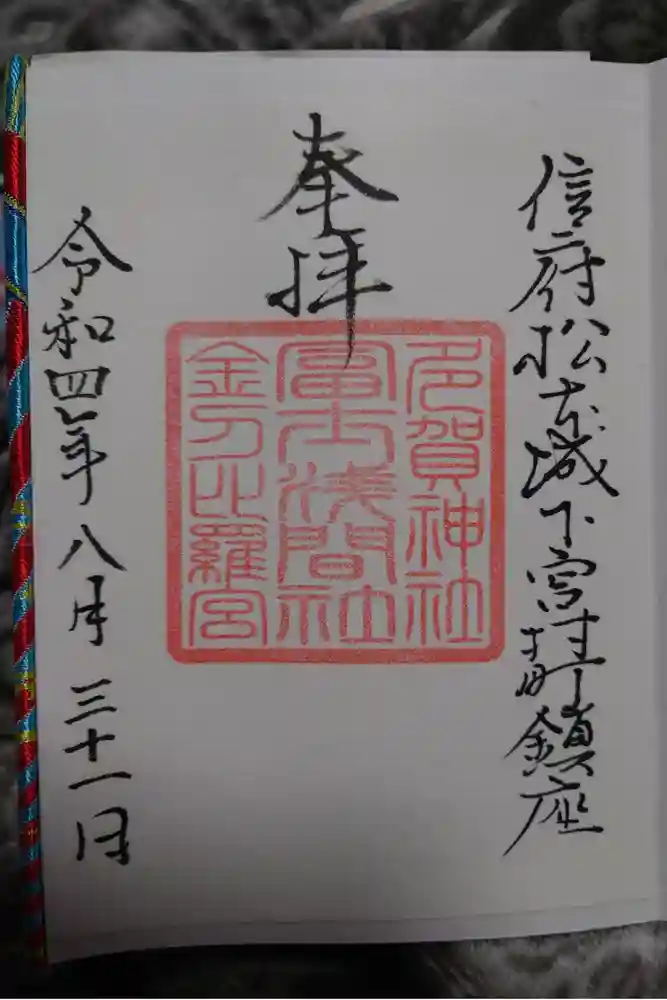 信府松本城下宮村町鎮座
奉拝
多賀神社
富士浅間社
金刀比羅宮
令和四年八月三十一日